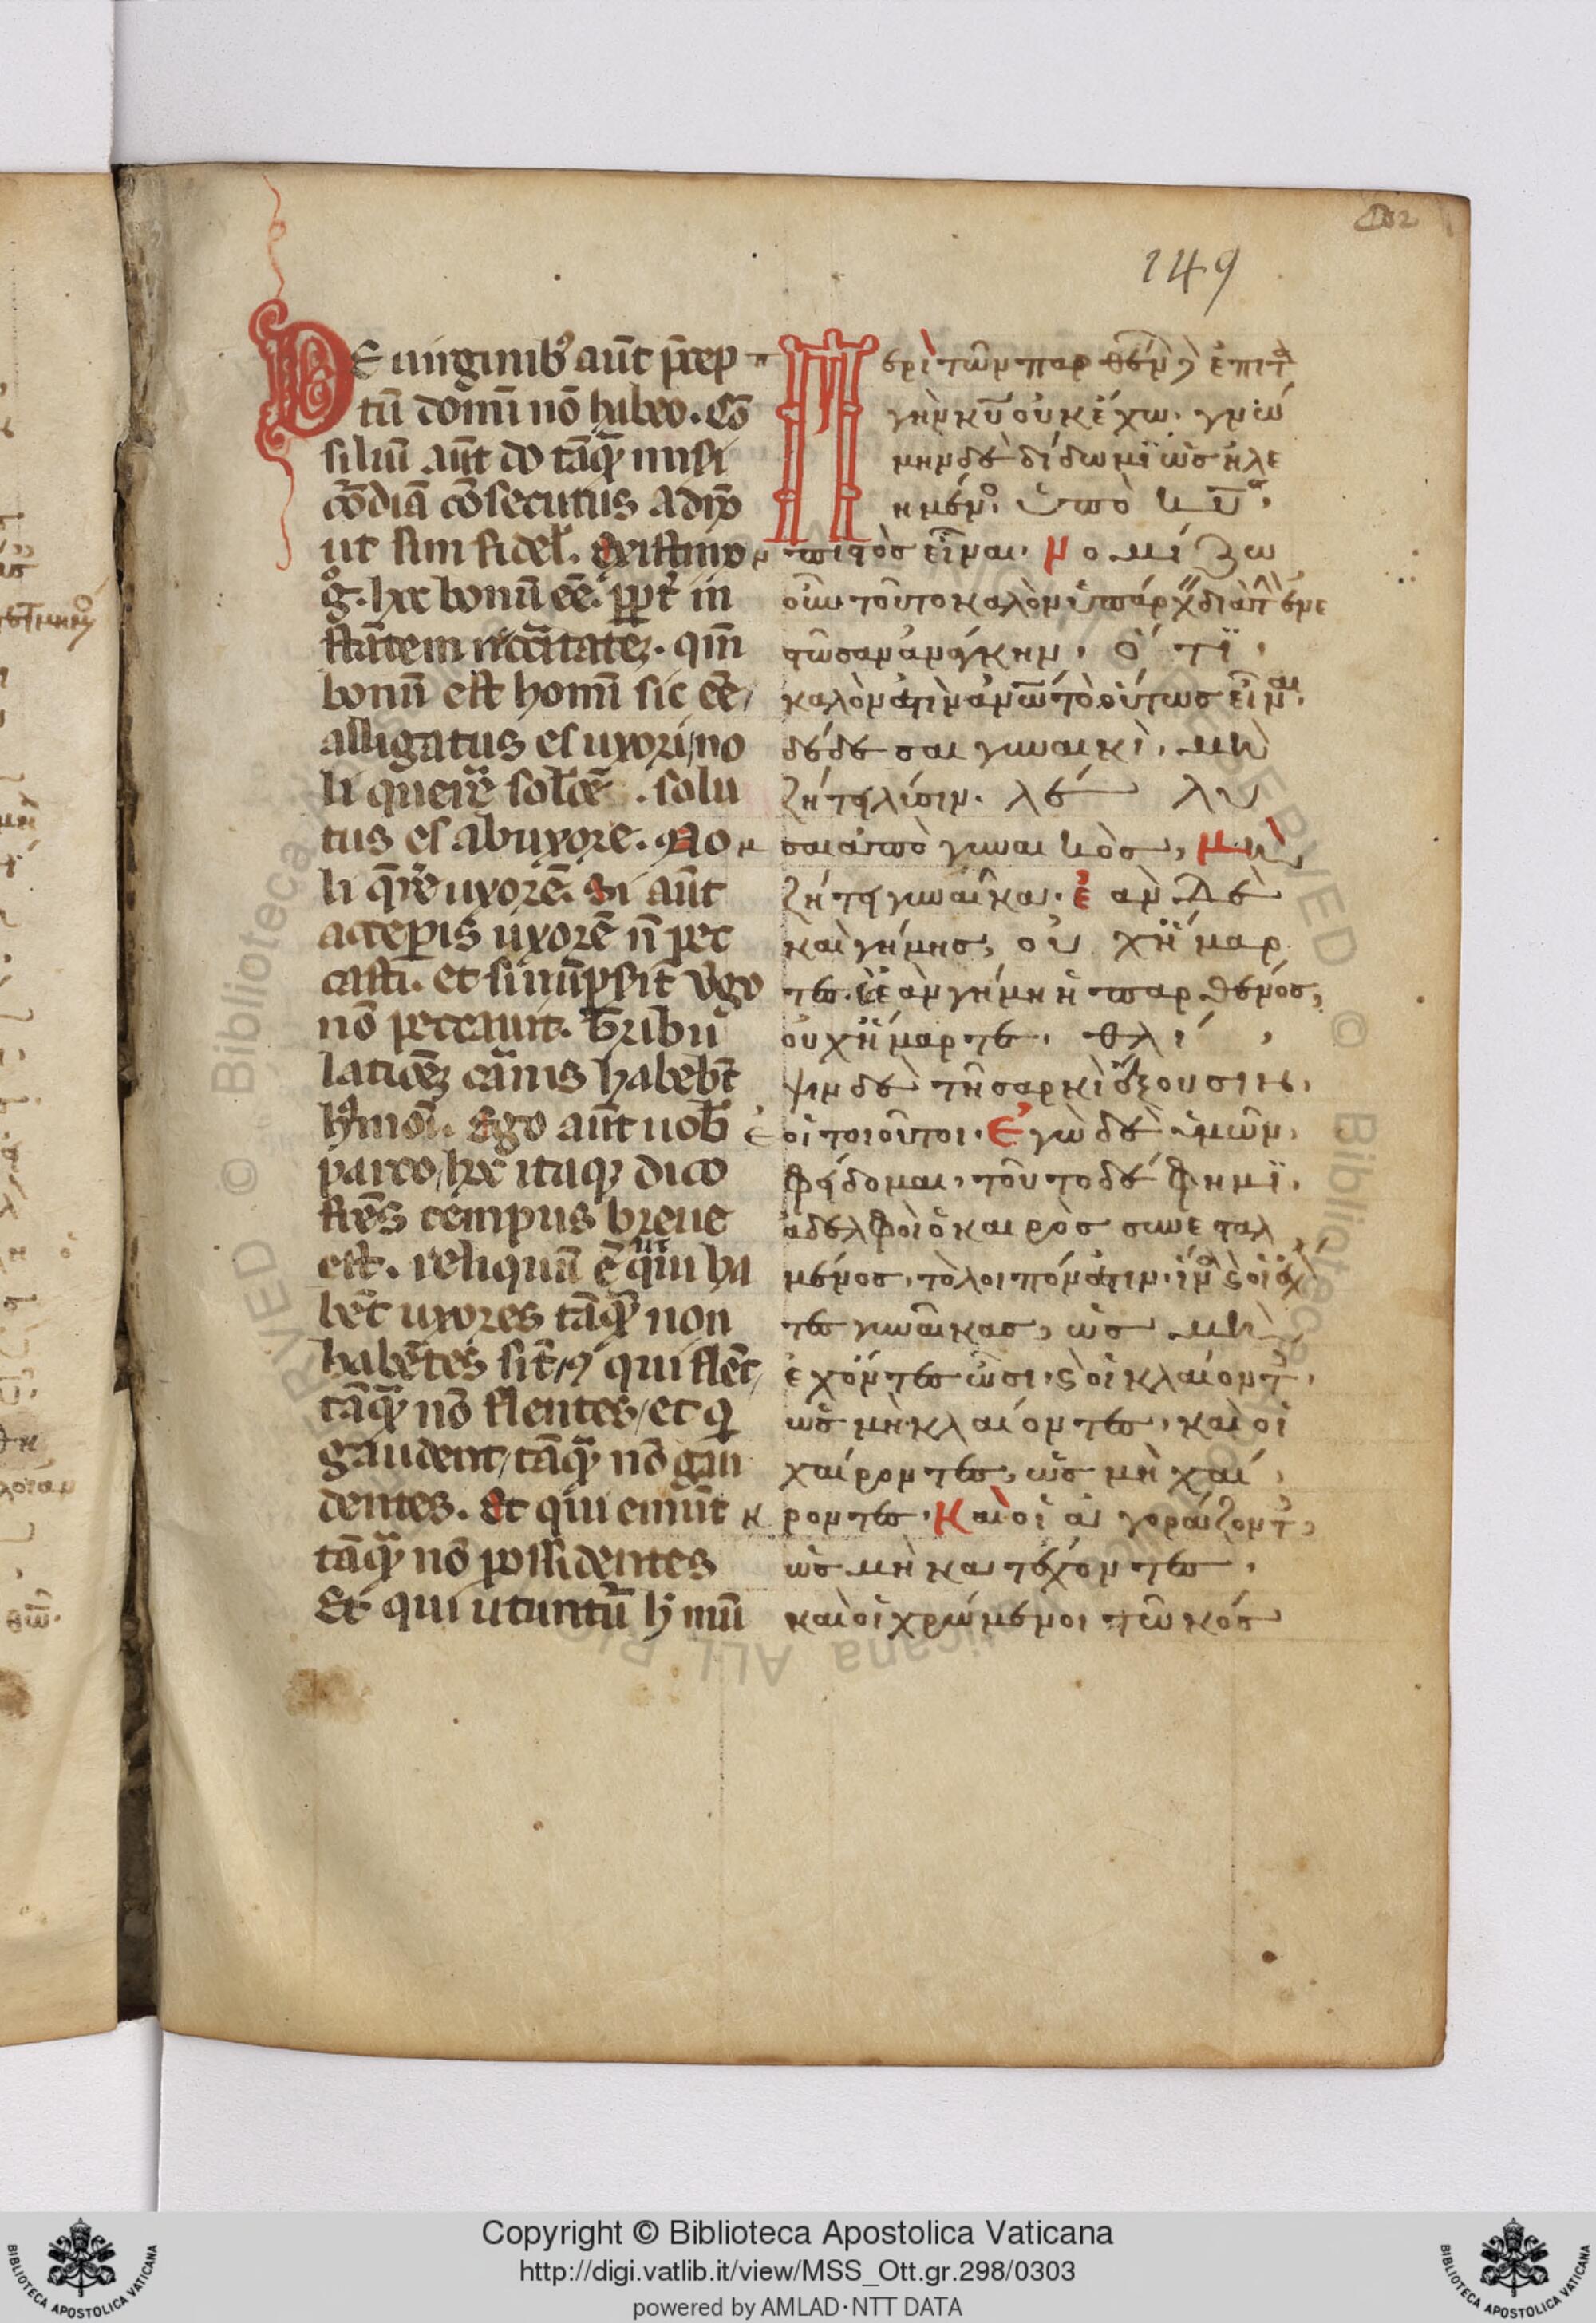 149
DE uirginib᷒ aūt p̄cep
tū domī nō habeo. Cō
siliū aūt do tāq̄ȝ misi
cōdiā cōsecutus a dn̄o
ut sim fidel̄. Existimo
g̊. hec bonū eē. ꝓpt̄ in
stātem necc̄itateȝ. qm̄
bonū est homī sic eē/
alligatus es uxori/no
li querē solōeȝ. solu
tus es ab uxore. No
li q̄rē uxorē. Si aūt
acceperis uxorē n̄ pec
casti. et si nūpsit ūgo
nō peccauit. Tribu
latioēȝ carnis habebt̄
hꝰmoī. Ego aūt uob̄
parco/hec itaqȝ dico
frēs tempus breue
est. reliquū ē ut qui ha
bēt uxores tāq̄ȝ non
habētes sīt/⁊ qui flēt/
tāq̄ȝ nō flentes/et q̇
gaudent/tāq̄ȝ nō gau
dentes. Et qui emūt
tāq̄ȝ nō possidentes
Et qui utuntur̄ h̄ mū
Περὶ τῶν παρθένων ἐπιτα
γὴν κ̅υ̅ οὐκ ἔχω. γνώ
μην δὲ δίδωμϊ ὡς ἠλε
ημένος ὑπὸ κ̅υ̅,
πιστὸς εἶναι. νομίζω
οὖν τοῦτο καλὸν ὑπάρχειν διὰ τὴν ἐνε
στῶσαν ἀνάγκην, ὅτϊ,
καλὸν ἐστὶν ἀν̅ω̅ τὸ οὕτως εἶναι.
δέδεσαι γυναικὶ, μὴ
ζήτει λύσιν. λέλυ
σαι ἀπὸ γυναικὸς, μὴ,
ζήτει γυναῖκα. ἐὰν δὲ
καὶ γήμης, οὐχ ἥμαρ
τες. κ ἐὰν γήμη ἡ παρθένος,
οὐχ ἥμαρτε, θλί,
ψιν δὲ τῆ σαρκὶ ἕξουσιν,
οἱ τοιοῦτοι. Ἐγὼ δὲ ὑμῶν,
φείδομαι, τοῦτο δέ φημϊ,
ἀδελφοὶ ὁ καιρὸς συνεσταλ
μένος, τὸ λοιπόν ἐστιν. ἵνα ϗ οἱ ἔχον
τες γυναῖκας, ὡς μὴ
ἐχόντες ὦσι, ϗ οἱ κλαίοντες,
ὡς μὴ κλαίοντες, καὶ οἱ
χαίροντες, ὡς μὴ χαί,
ροντες. Καὶ οἱ ἀγοράζοντες,
ὡς μὴ κατέχοντες,
καὶ οἱ χρώμενοι τῶ κόσ
Copyright © Biblioteca Apostolica Vaticana
http://digi.vatlib.it/view/MSS_Ott.gr.298/0303
powered by AMLAD·NTT DATA
BIBLIOTECA APOSTOLICA VATICANA
BIBLIOTECA APOSTOLICA VATICANA